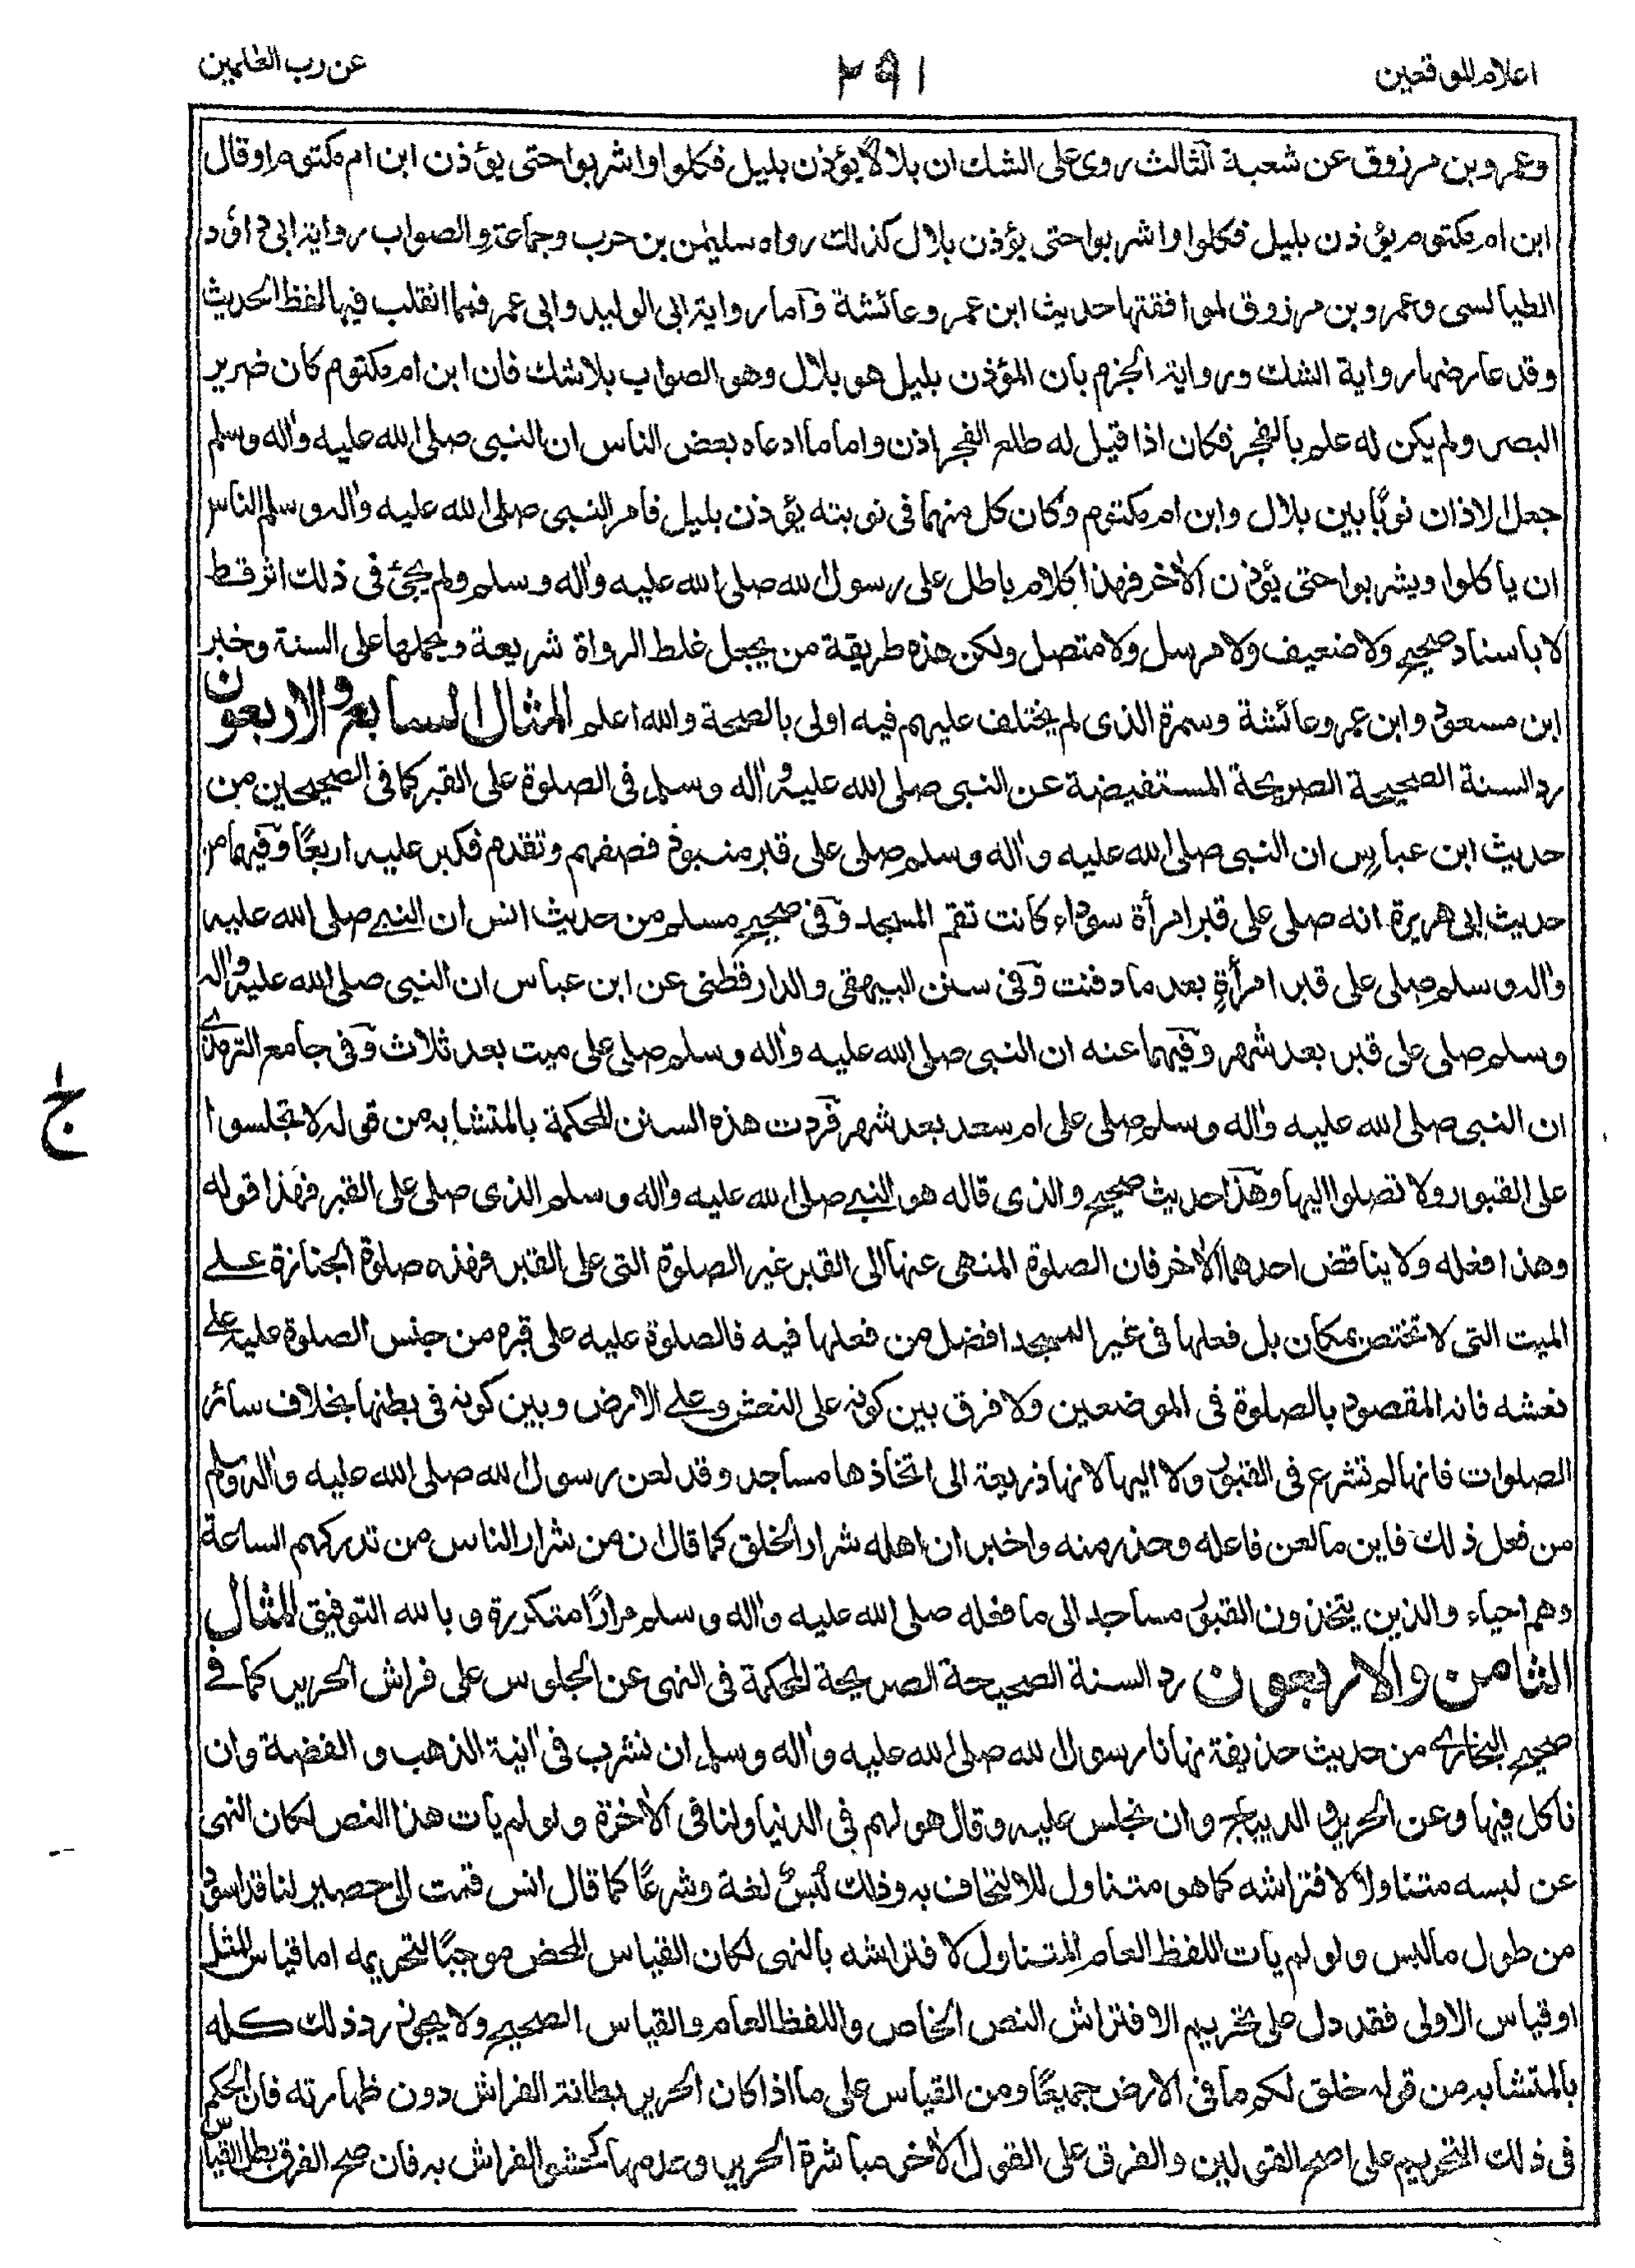 اعلام الموقعين
٢٩١
عن رب العلمين
وعمرو بن مرزوق عن شعبة الثالث روى على الشك ان بلالا يؤذن بليل فكلوا واشربوا حتى يؤذن ابن ام مكتوم او قال
ابن ام مكتوم يؤذن بليل فكلوا واشربوا حتى يؤذن بلال كذلك رواه سليمٰن بن حرب وجماعة والصواب رواية ابى داؤد
الطيالسى وعمرو بن مرزوق لموافقتها حديث ابن عمر وعائشة وآما رواية ابى الوليد وابى عمر فمما انقلب فيها لفظ الحديث
وقد عارضها رواية الشك ورواية الجزم بان المؤذن بليل هو بلال وهو الصواب بلا شك فان ابن ام مكتوم كان ضرير
البصر ولم يكن له علم بالفجر فكان اذا قيل له طلع الفجر اذن واما ما ادعاه بعض الناس ان النبى صلى الله عليه واٰله وسلم
جعل الاذان نوبًا بين بلال وابن ام مكتوم وكان كل منهما فى نوبته يؤذن بليل فامر النبى صلى الله عليه واٰله وسلم الناس
ان ياكلوا ويشربوا حتى يؤذن الاٰخر فهذا كلام باطل على رسول الله صلى الله عليه واٰله وسلم ولم يجئ فى ذلك اثر قط
لا باسناد صحيح ولا ضعيف ولا مرسل ولا متصل ولكن هذه طريقة من يجعل غلط الرواة شريعة ويحملها على السنة وخبر
ابن مسعود وابن عمر وعائشة وسمرة الذى لم يختلف عليهم فيه اولى بالصحة والله اعلم المثال السابع والاربعون
رد السنة الصحيحة الصريحة المستفيضة عن النبى صلى الله عليه واٰله وسلم فى الصلوة على القبر كما فى الصحيحين من
حديث ابن عباس ان النبى صلى الله عليه واٰله وسلم صلى على قبر منبوذ فصفهم وتقدم فكبر عليه اربعًا وفيهما من
حديث ابى هريرة انه صلى على قبر امرأة سوداء كانت تقم المسجد وفى صحيح مسلم من حديث انس ان النبے صلى الله عليه
واٰله وسلم صلى على قبر امرأةٍ بعد ما دفنت وفى سنن البيهقى والدارقطنى عن ابن عباس ان النبى صلى الله عليه واٰله
وسلم صلى على قبر بعد شهر وفيهما عنه ان النبى صلى الله عليه واٰله وسلم صلى على ميت بعد ثلاث وفى جامع الترمذے
ان النبى صلى الله عليه واٰله وسلم صلى على ام سعد بعد شهر فردت هذه السنن المحكمة بالمتشابه من قوله لا تجلسوا
على القبور ولا تصلوا اليها وهٓذا حديث صحيح والذى قاله هو النبے صلى الله عليه واٰله وسلم الذى صلى على القبر فهذا قوله
وهذا فعله ولا يناقض احدهما الاٰخر فان الصلوة المنهى عنها الى القبر غير الصلوة التى على القبر فهذه صلوة الجنازة علے
الميت التى لا تختص بمكان بل فعلها فى غير المسجد افضل من فعلها فيه فالصلوة عليه على قبره من جنس الصلوة عليه علے
نعشه فانه المقصود بالصلوة فى الموضعين ولا فرق بين كونه على النعش وعلے الارض وبين كونه فى بطنها بخلاف سائر
الصلوات فانها لم تشرع فى القبور ولا اليها لانها ذريعة الى اتخاذها مساجد وقد لعن رسول الله صلى الله عليه واٰله وسلم
من فعل ذلك فاين ما لعن فاعله وحذر منه واخبر ان اهله شرار الخلق كما قال ان من شرار الناس من تدركهم الساعة
وهم احياء والذين يتخذون القبور مساجد الى ما فعله صلى الله عليه واٰله وسلم مرارًا متكررة وبالله التوفيق المثال
الثامن والاربعون رد السنة الصحيحة الصريحة المحكمة فى النهى عن الجلوس على فراش الحرير كما فے
صحيح البخارے من حديث حذيفة نهانا رسول الله صلى الله عليه واٰله وسلم ان نشرب فى اٰنية الذهب والفضة وان
ناكل فيها وعن الحرير والديباج وان نجلس عليه وقال هو لهم فى الدنيا ولنا فى الاٰخرة ولو لم يات هذا النص لكان النهى
عن لبسه متناولا لافتراشه كما هو متناول للالتحاف به وذلك لُبسٌ لغة وشرعًا كما قال انس قمت الى حصير لنا قد اسود
من طول ما لبس ولو لم يات اللفظ العام المتناول لافتراشه بالنهى لكان القياس المحض موجبًا لتحريمه اما قياس المثل
او قياس الاولى فقد دل على تحريم الافتراش النص الخاص واللفظ العام والقياس الصحيح ولا يجوز رد ذلك كله
بالمتشابه من قوله خلق لكم ما فى الارض جميعًا ومن القياس على ما اذا كان الحرير بطانة الفراش دون ظهارته فان الحكم
فى ذلك التحريم على اصح القولين والفرق على القول الاٰخر مباشرة الحرير وعدمها كحشو الفراش به فان صح الفرق بطل القياس
ج